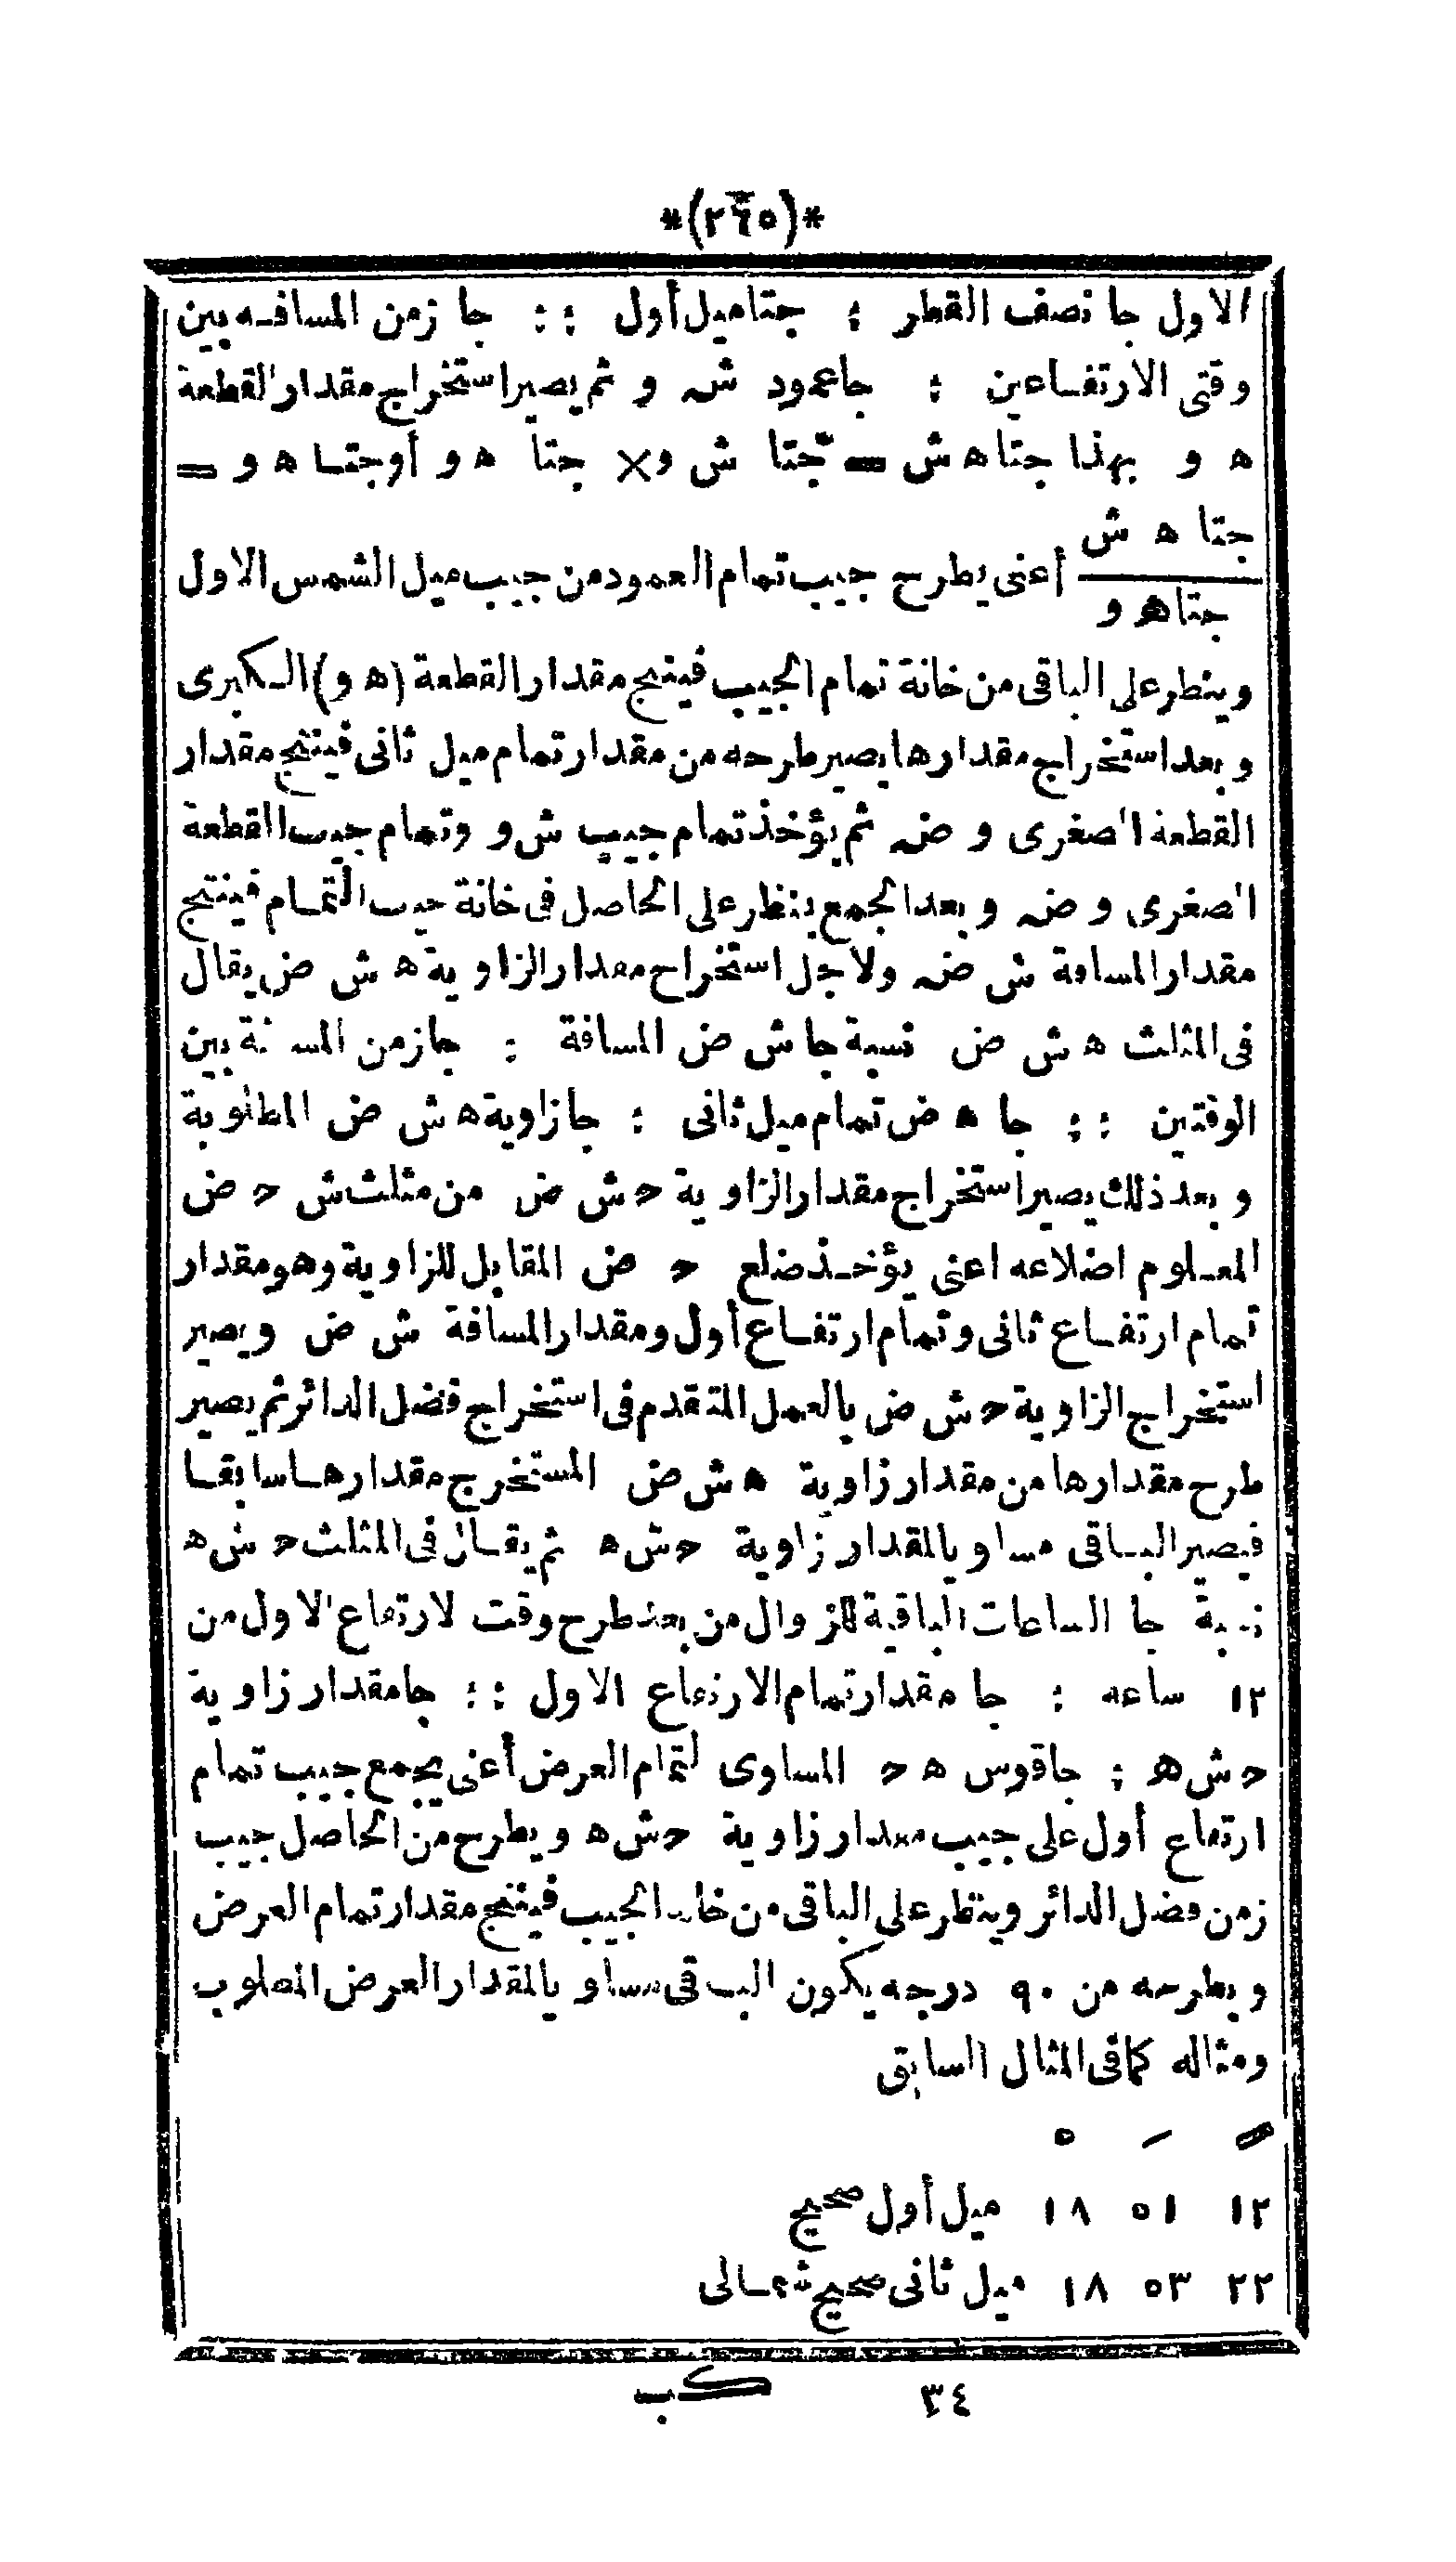 *(٢٦٥)*
الاول جا نصف القطر : جتا ميل أول :: جا زمن المسافه بين
وقتى الارتفاعين : جا عمود ش و ثم يصير استخراج مقدار القطعة
ه و بهذا جتا ه ش = جتا ش و × جتا ه و أو جتا ه و =
جتا ه ش
أعنى يطرح جيب تمام العمود من جيب ميل الشمس الاول
جتا ه و
وينظر على الباقى من خانة تمام الجيب فينتج مقدار القطعة (ه و) الكبرى
وبعد استخراج مقدارها يصير طرحه من مقدار تمام ميل ثانى فينتج مقدار
القطعة الصغرى و ض ثم يؤخذ تمام جيب ش و وتمام جيب القطعة
الصغرى و ض وبعد الجمع ينظر على الحاصل فى خانة جيب التمام فينتج
مقدار المسافة ش ض ولاجل استخراج مقدار الزاوية ه ش ض يقال
فى المثلث ه ش ض نسبة جا ش ض المسافة : جا زمن المسافة بين
الوقتين :: جا ه ض تمام ميل ثانى : جا زاوية ه ش ض المطلوبة
وبعد ذلك يصير استخراج مقدار الزاوية ح ش ض من مثلث ش ح ض
المعلوم اضلاعه اعنى يؤخذ ضلع ح ض المقابل للزاوية وهو مقدار
تمام ارتفاع ثانى وتمام ارتفاع أول ومقدار المسافة ش ض ويصير
استخراج الزاوية ح ش ض بالعمل المتقدم فى استخراج فضل الدائر ثم يصير
طرح مقدارها من مقدار زاوية ه ش ض المستخرج مقدارها سابقا
فيصير الباقى مساويا لمقدار زاوية ح ش ه ثم يقال فى المثلث ح ش ه
نسبة جا الساعات الباقية للزوال من بعد طرح وقت لارتفاع الاول من
١٢ ساعه : جا مقدار تمام الارتفاع الاول :: جا مقدار زاوية
ح ش ه : جا قوس ه ح المساوى لتمام العرض أعنى يجمع جيب تمام
ارتفاع أول على جيب مقدار زاوية ح ش ه ويطرح من الحاصل جيب
زمن فضل الدائر وينظر على الباقى من خانة الجيب فينتج مقدار تمام العرض
وبطرحه من ٩٠ درجه يكون الباقى مساويا لمقدار العرض المطلوب
ومثاله كما فى المثال السابق
١٢ ٥١ ١٨ ميل أول صحيح
٢٢ ٥٣ ١٨ ميل ثانى صحيح شمالى
٣٤ كب